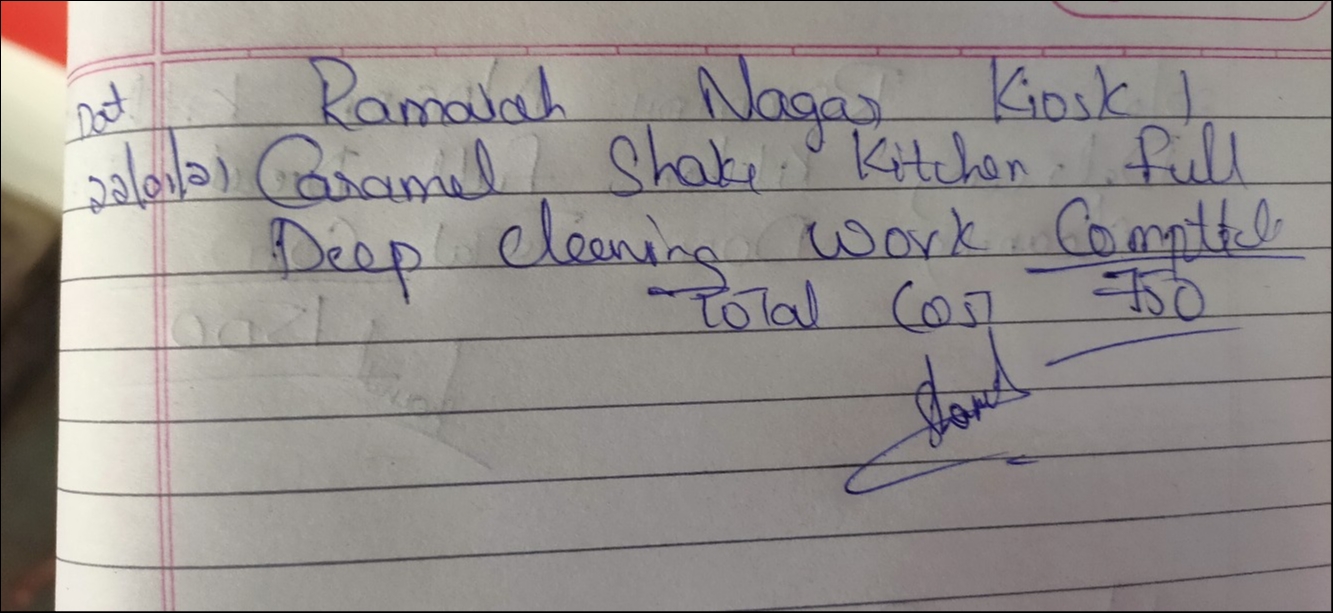 Dat Ramaiah Nagar Kiosk 1
22/01/21 Caramel Shake Kitchen full
Deep cleening work Compttle
Total Cost 750